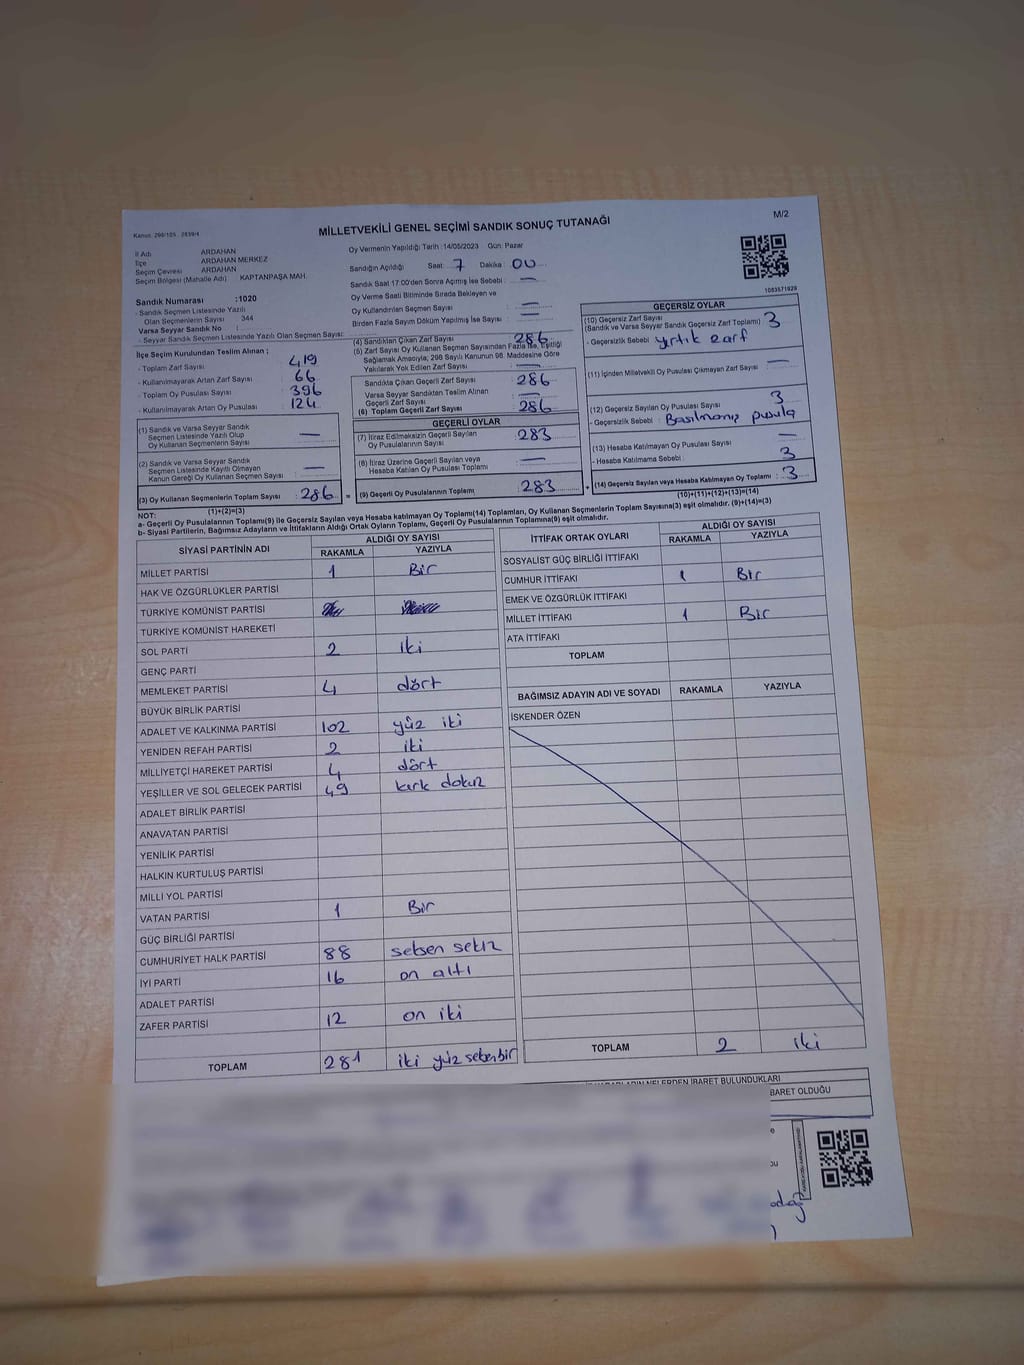 Kanun: 298/105 , 2839/4
MİLLETVEKİLİ GENEL SEÇİMİ SANDIK SONUÇ TUTANAĞI
M/2
İl Adı ARDAHAN
İlçe ARDAHAN MERKEZ
Seçim Çevresi ARDAHAN
Seçim Bölgesi (Mahalle Adı) KAPTANPAŞA MAH.
Sandık Numarası :1020
- Sandık Seçmen Listesinde Yazılı
Olan Seçmenlerin Sayısı 344
Varsa Seyyar Sandık No :
- Seyyar Sandık Seçmen Listesinde Yazılı Olan Seçmen Sayısı:
Oy Vermenin Yapıldığı Tarih :14/05/2023 Gün: Pazar
Sandığın Açıldığı Saat 7 Dakika : 00
Sandık Saat 17:00'den Sonra Açılmış İse Sebebi : —
Oy Verme Saati Bitiminde Sırada Bekleyen ve
Oy Kullandırılan Seçmen Sayısı : —
Birden Fazla Sayım Döküm Yapılmış İse Sayısı : —
1083571929
İlçe Seçim Kurulundan Teslim Alınan ;
- Toplam Zarf Sayısı : 419
- Kullanılmayarak Artan Zarf Sayısı : 66
- Toplam Oy Pusulası Sayısı : 396
- Kullanılmayarak Artan Oy Pusulası : 124
(1) Sandık ve Varsa Seyyar Sandık
Seçmen Listesinde Yazılı Olup
Oy Kullanan Seçmenlerin Sayısı —
(2) Sandık ve Varsa Seyyar Sandık
Seçmen Listesinde Kayıtlı Olmayan
Kanun Gereği Oy Kullanan Seçmen Sayısı : —
(3) Oy Kullanan Seçmenlerin Toplam Sayısı : 286 =
(1)+(2)=(3)
(4) Sandıktan Çıkan Zarf Sayısı : 286
(5) Zarf Sayısı Oy Kullanan Seçmen Sayısından Fazla İse, Eşitliği
Sağlamak Amacıyla; 298 Sayılı Kanunun 98. Maddesine Göre
Yakılarak Yok Edilen Zarf Sayısı : —
Sandıkta Çıkan Geçerli Zarf Sayısı : 286
Varsa Seyyar Sandıktan Teslim Alınan
Geçerli Zarf Sayısı : —
(6) Toplam Geçerli Zarf Sayısı : 286
GEÇERLİ OYLAR
(7) İtiraz Edilmeksizin Geçerli Sayılan
Oy Pusulalarının Sayısı : 283
(8) İtiraz Üzerine Geçerli Sayılan veya
Hesaba Katılan Oy Pusulası Toplamı : —
(9) Geçerli Oy Pusulalarının Toplamı : 283 +
GEÇERSİZ OYLAR
(10) Geçersiz Zarf Sayısı
(Sandık ve Varsa Seyyar Sandık Geçersiz Zarf Toplamı) : 3
- Geçersizlik Sebebi : yırtık zarf
(11) İçinden Milletvekili Oy Pusulası Çıkmayan Zarf Sayısı : —
(12) Geçersiz Sayılan Oy Pusulası Sayısı : 3
- Geçersizlik Sebebi : Basılmamış pusula
(13) Hesaba Katılmayan Oy Pusulası Sayısı : —
- Hesaba Katılmama Sebebi : 3
(14) Geçersiz Sayılan veya Hesaba Katılmayan Oy Toplamı : 3
(10)+(11)+(12)+(13)=(14)
NOT:
a- Geçerli Oy Pusulalarının Toplamı(9) ile Geçersiz Sayılan veya Hesaba katılmayan Oy Toplamı(14) Toplamları, Oy Kullanan Seçmenlerin Toplam Sayısına(3) eşit olmalıdır. (9)+(14)=(3)
b- Siyasi Partilerin, Bağımsız Adayların ve İttifakların Aldığı Ortak Oyların Toplamı, Geçerli Oy Pusulalarının Toplamına(9) eşit olmalıdır.
SİYASİ PARTİNİN ADI ALDIĞI OY SAYISI
RAKAMLA YAZIYLA
MİLLET PARTİSİ 1 Bir
HAK VE ÖZGÜRLÜKLER PARTİSİ
TÜRKİYE KOMÜNİST PARTİSİ
TÜRKİYE KOMÜNİST HAREKETİ
SOL PARTİ 2 iki
GENÇ PARTİ
MEMLEKET PARTİSİ 4 dört
BÜYÜK BİRLİK PARTİSİ
ADALET VE KALKINMA PARTİSİ 102 yüz iki
YENİDEN REFAH PARTİSİ 2 iki
MİLLİYETÇİ HAREKET PARTİSİ 4 dört
YEŞİLLER VE SOL GELECEK PARTİSİ 49 kırk dokuz
ADALET BİRLİK PARTİSİ
ANAVATAN PARTİSİ
YENİLİK PARTİSİ
HALKIN KURTULUŞ PARTİSİ
MİLLİ YOL PARTİSİ
VATAN PARTİSİ 1 Bir
GÜÇ BİRLİĞİ PARTİSİ
CUMHURİYET HALK PARTİSİ 88 seksen sekiz
İYİ PARTİ 16 on altı
ADALET PARTİSİ
ZAFER PARTİSİ 12 on iki
TOPLAM 281 iki yüz seksenbir
İTTİFAK ORTAK OYLARI ALDIĞI OY SAYISI
RAKAMLA YAZIYLA
SOSYALİST GÜÇ BİRLİĞİ İTTİFAKI
CUMHUR İTTİFAKI 1 Bir
EMEK VE ÖZGÜRLÜK İTTİFAKI
MİLLET İTTİFAKI 1 Bir
ATA İTTİFAKI
TOPLAM
BAĞIMSIZ ADAYIN ADI VE SOYADI RAKAMLA YAZIYLA
İSKENDER ÖZEN
TOPLAM 2 iki
NELERDEN İBARET BULUNDUKLARI
BARET OLDUĞU